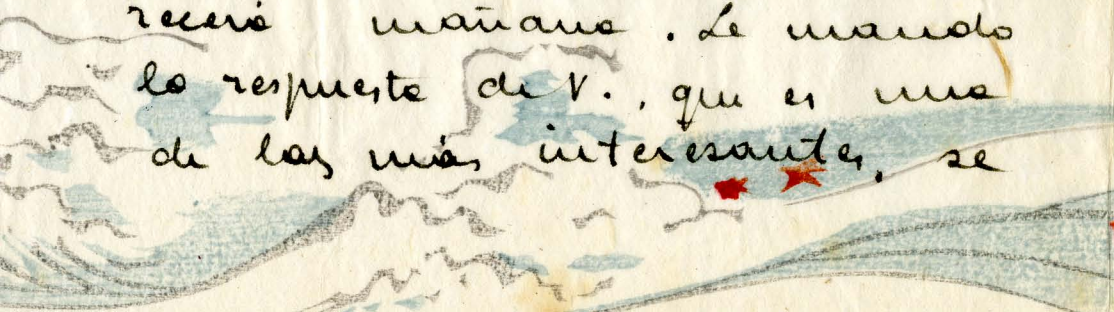 recerá mañana. Le mando
la respuesta de V., que es una
de las más interesantes, se